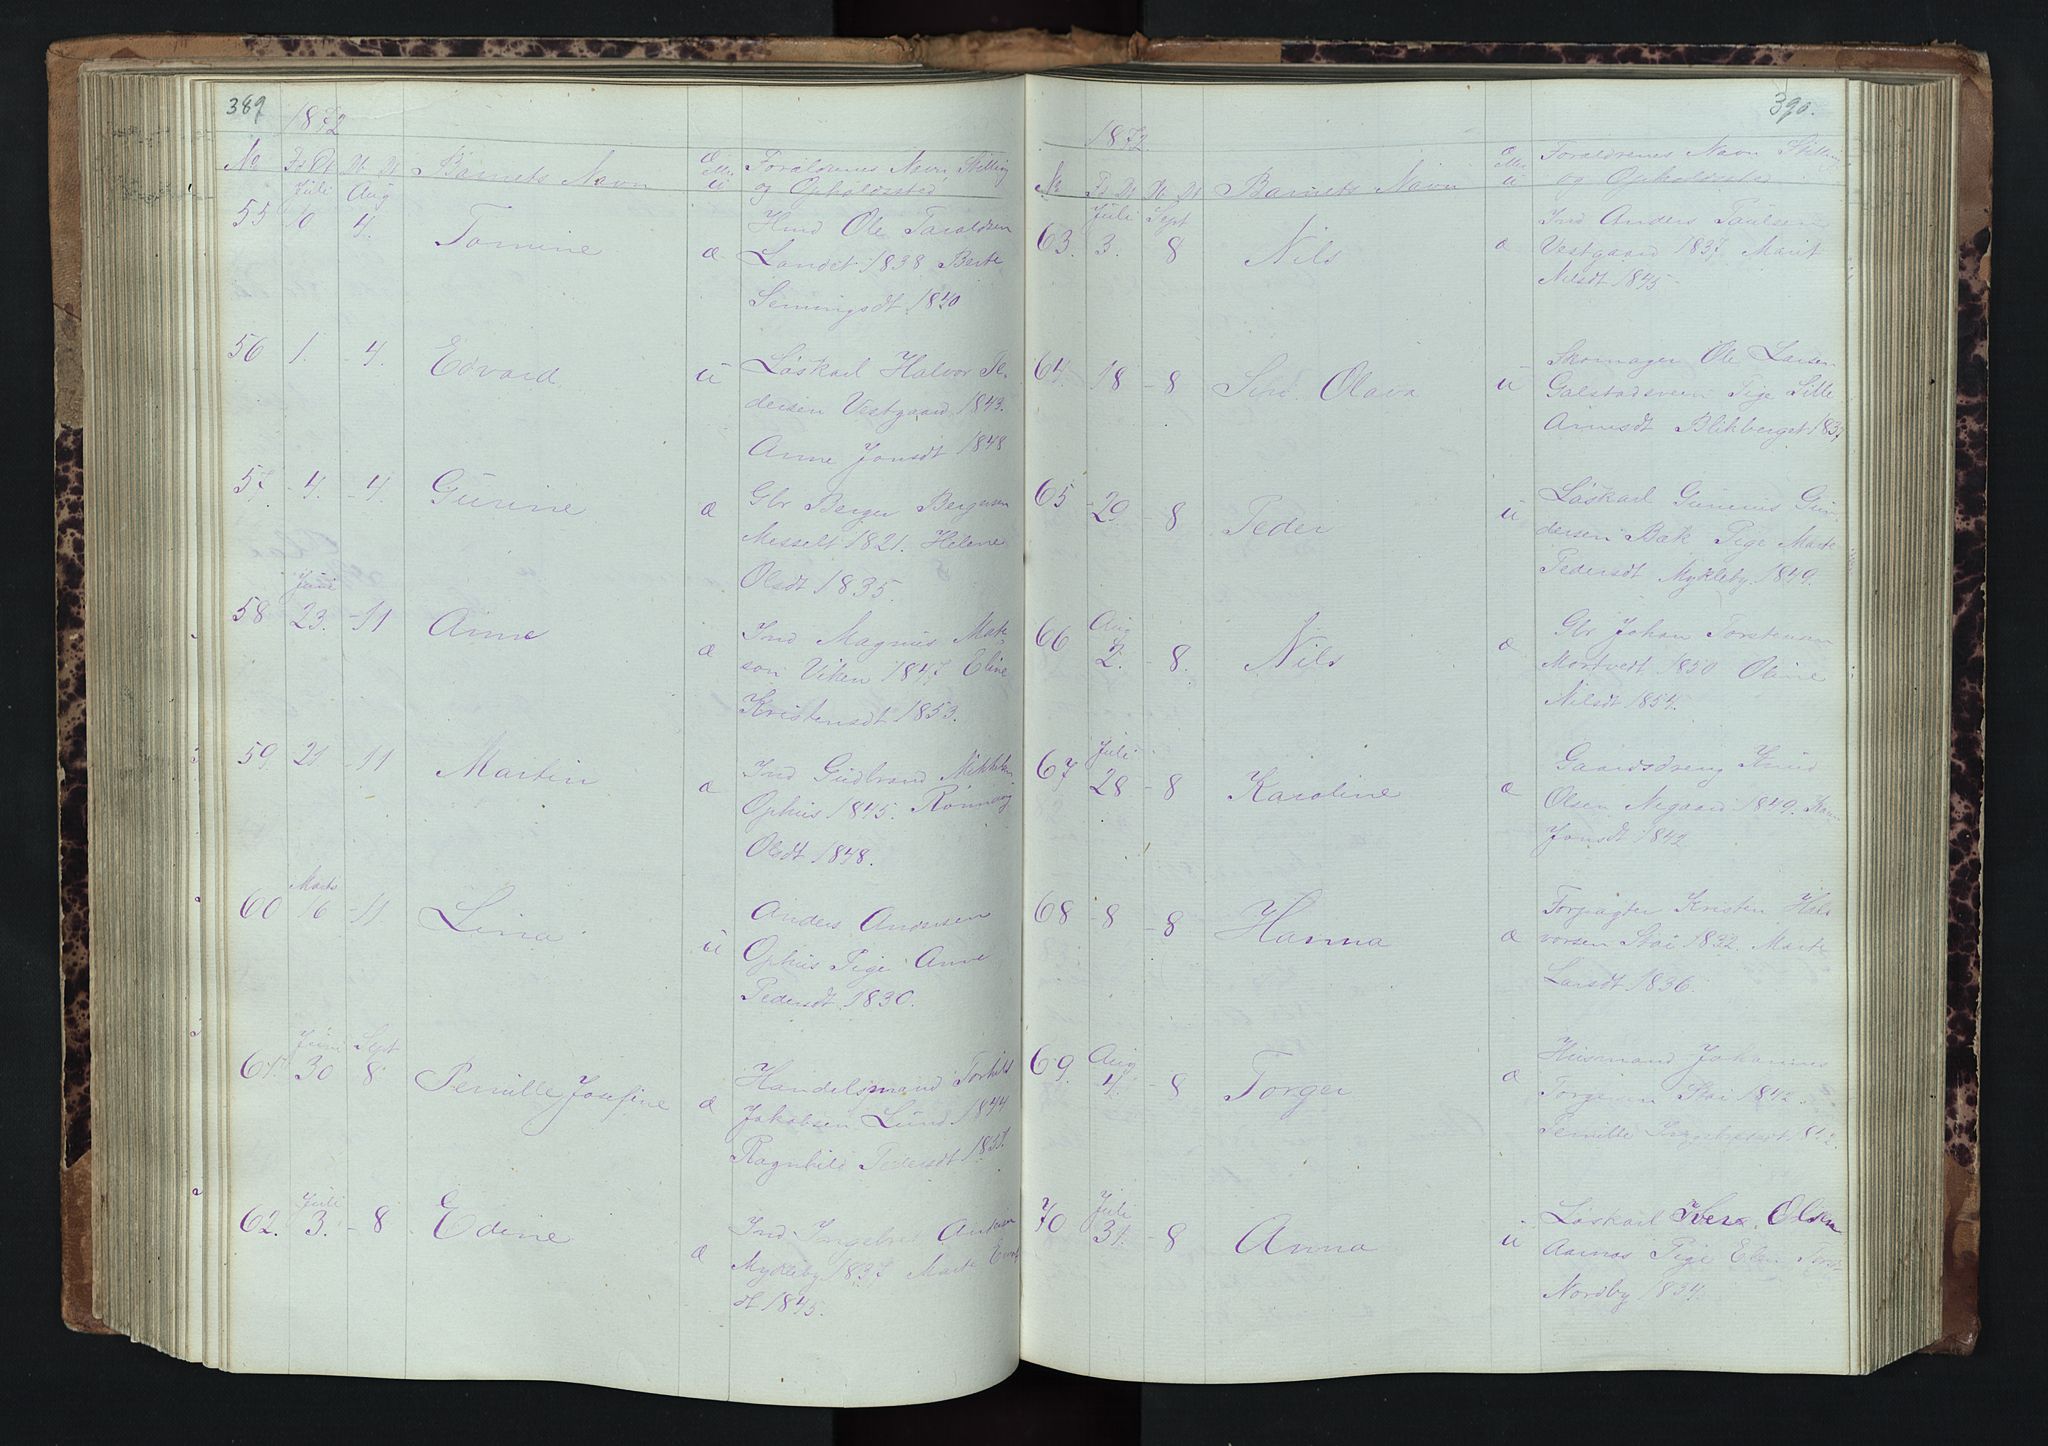 389
1872
No Fs Dt Db Dt Barnets Navn Æ eller U Forældrenes Navn, Stilling
og Opholdssted
Juli Aug
55 6 4. Tomine Æ Hmd Ole Taraldsen
Landet 1838 Berte
Semmingsdt 1840
56 1. - 4. Edvard U Løskarl Halvor Pe-
dersen Vestgaard 1843.
Anne Jonsdt 1848
57 - 4. - 4. Gurine Æ Gbr Berger Bergersen
Messelt 1821. Helene
Olsdt 1835.
Juni
58 23. - 11 Anne Æ Ind Magnus Mate-
son Viken 1847 Eline
Kristensdt 1853.
59. 21 - 11 Martin Æ Ind Gudbrand Mikkels.
Ophus 1845. Rønnaug
Olsdt 1848.
Marts
60 16 - 11 Lina U Anders Andersen
Ophus Pige Anne
Pedersdt 1830.
Juni Sept
61. 30 8 Pernille Josefine Æ Handelsmand Torkils
Jakobsen Lund 1844
Ragnhild Pedersdt
Juli
62. 3. - 8 Edine Æ Ind. Ingebr
Mykleby 1837 Marte
dt 1845.
390.
1872.
No Fs Dt Db Dt Barnets Navn Æ eller U Forældrenes Navn Stilling
og Opholdssted
Juli Sept
63. 3. 8 Nils Æ Ind Anders Paulsen
Vestgaard 1837 Marit
Nilsdt 1845
64. 18 - 8 Siri Olava U Skomager Ole Larsen
Galstadsveen Pige Sille
Arnesdt Blikberget 1837
65 - 29. - 8 Peder U Løskarl Gunerus Gun
dersen Bæk Pige Marte
Pedersdt Mykleby 1849.
Aug
66 2. - 8. Nils Æ Gbr Johan Torstensen
Mortvedt 1850 Oline
Nilsdt 1854.
Juli
67 28 - 8 Karoline Æ Gaardsdreng Knud
Olsen Negaard 1849. Karen
Jonsdt 1842
68 - 8 - 8 Hanna Æ Forpagter Kristen Hal
vorsen Stai 1832. Marte
Larsdt 1836.
Aug
69. 4. - 8 Torger Æ Husmand Johannes
Torgersen Stai 1842.
Pernille Ingebretsdt
Juli
70 31. - 8 Anna U Løskarl Iver Olsen
Aarnæs Pige Elen
Nordby 1834.